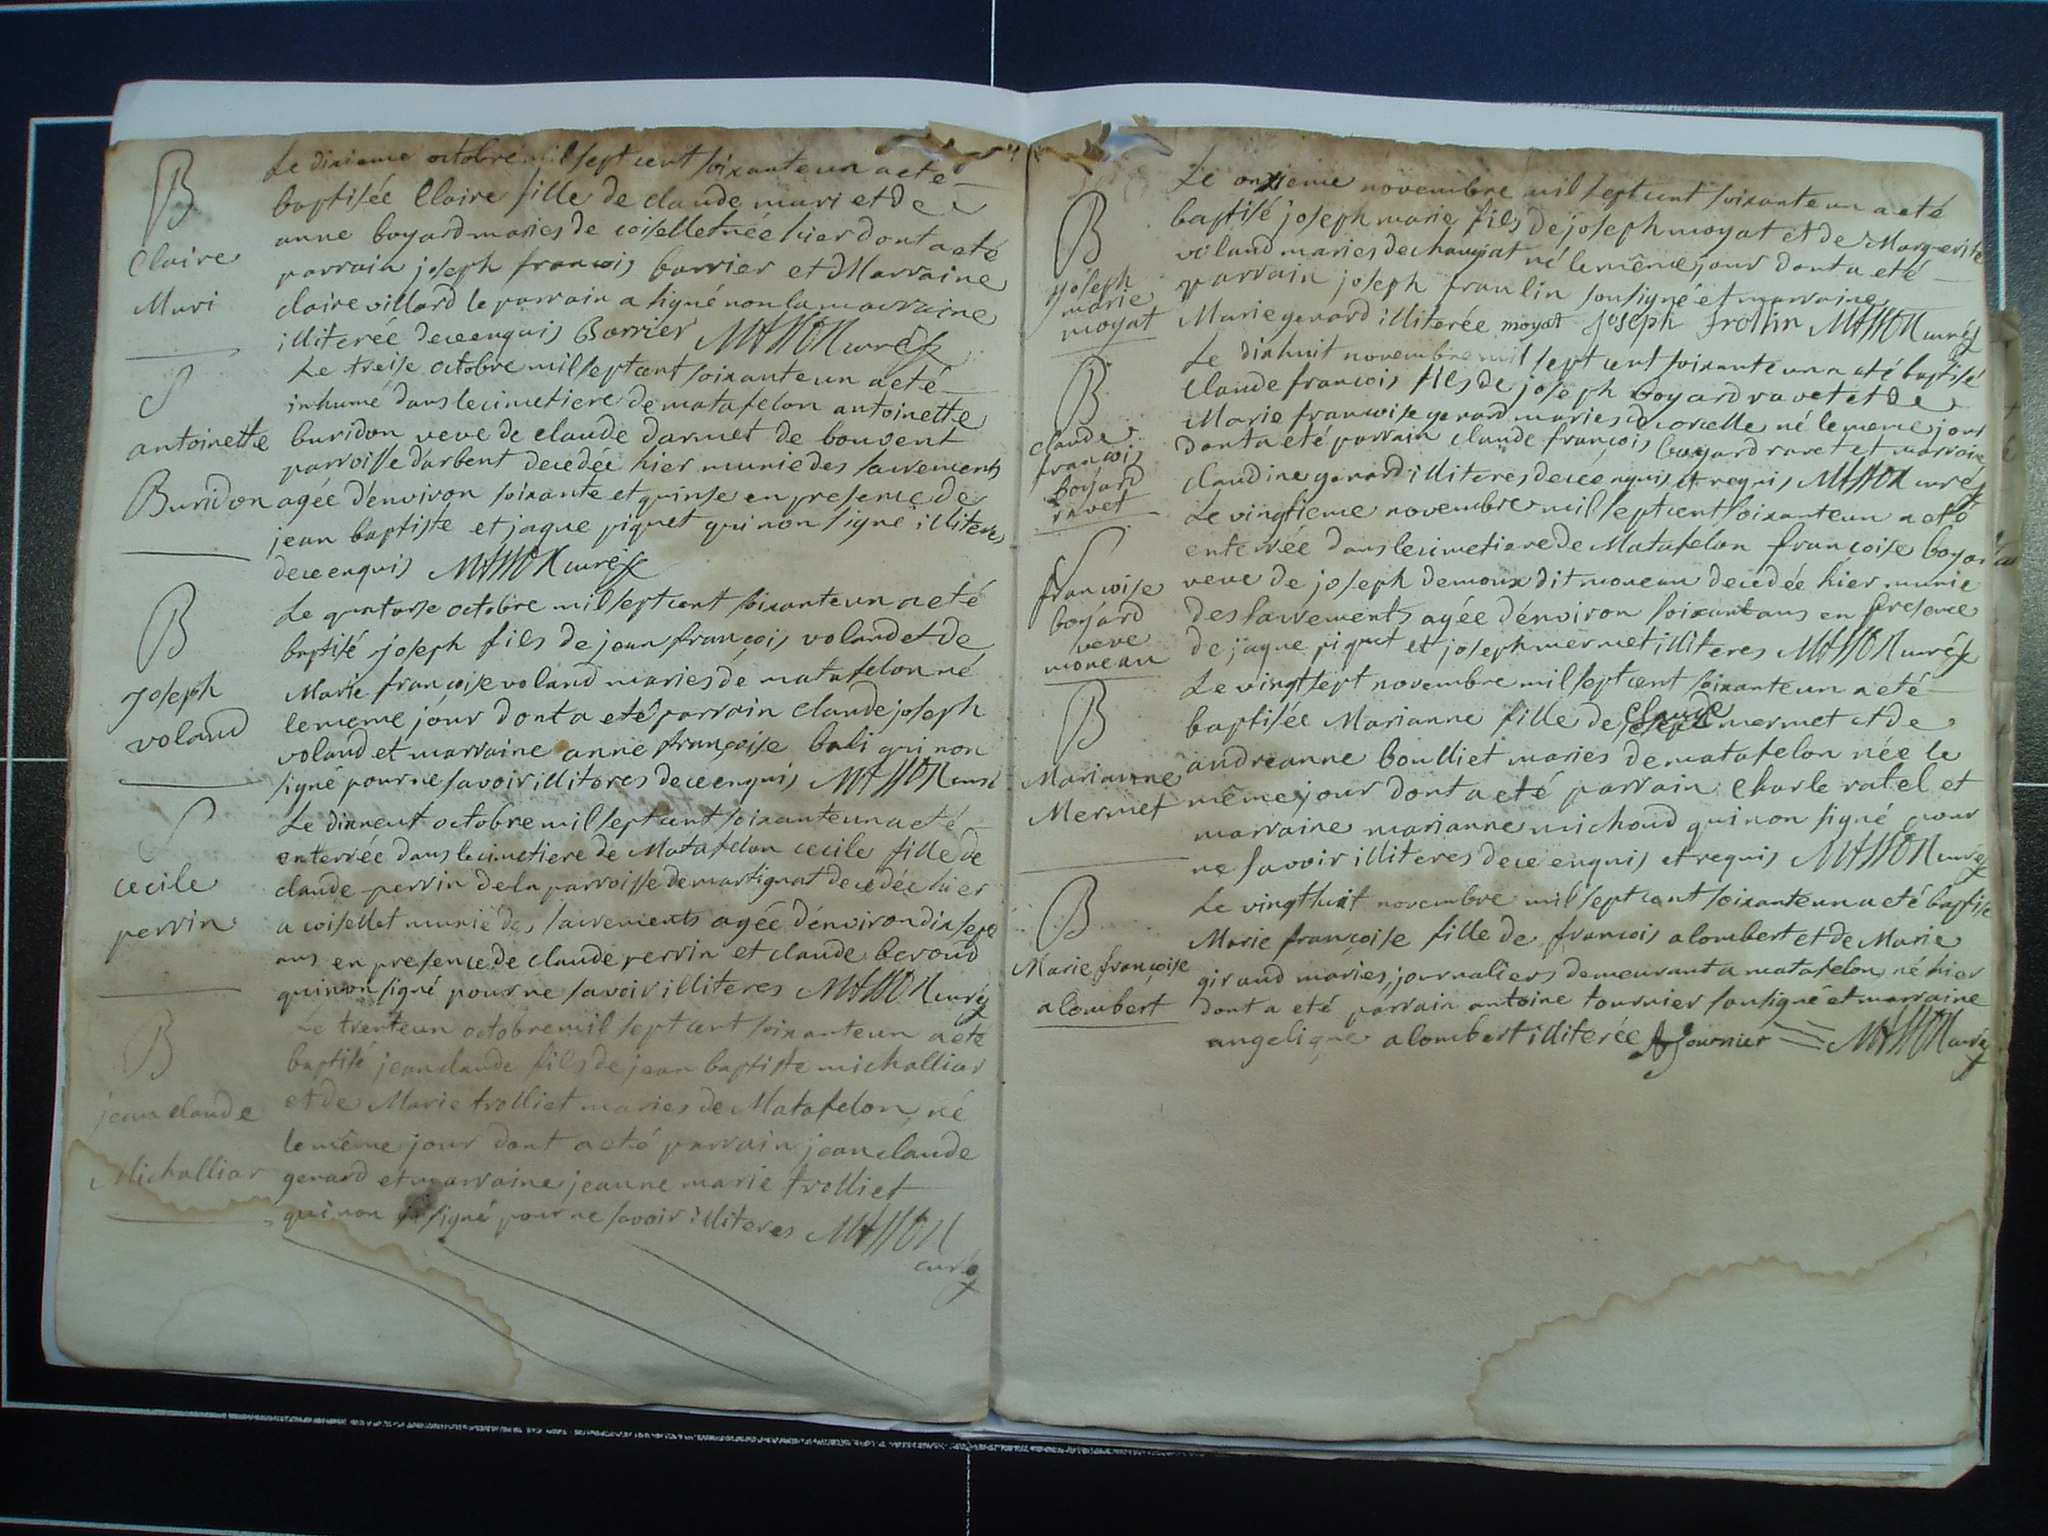 B
Claire
Muri
Le dixieme octobre mil sept cent soixante un a eté
baptisée Claire fille de claude muri et de
anne boyard mariés de coisellet née hier dont a eté
parrain joseph françois barrier et Marraine
claire villard le parrain a signé non la marraine
illiterée de ce enquis Barrier MASSON curé
S
antoinette
Buridon
Le treise octobre mil sept cent soixante un a eté
inhumé dans le cimetiere de matafelon antoinette
buridon veve de claude darmet de bouvent
parroisse d'arbent decedée hier munie des sacrements
agée d'environ soixante et quinse en presence de
jean baptiste et jaque piquet qui non signé illiteres
de ce enquis MASSON curé
B
Joseph
voland
Le quatorse octobre mil sept cent soixante un a eté
baptisé joseph fils de jean françois voland et de
Marie françoise voland mariés de matafelon né
le meme jour dont a eté parrain Claude joseph
voland et marraine anne françoise bali qui non
signé pour ne savoir illiteres de ce enquis MASSON curé
S
cecile
perrin
Le dixneuf octobre mil sept cent soixante un a eté
enterrée dans le cimetiere de Matafelon cecile fille de
claude perrin de la parroisse de martignat decedée hier
a coisellet munie des sacrements agée d'environ dix sept
ans en presence de claude perrin et claude beroud
qui non signé pour ne savoir illiteres MASSON curé
B
jean claude
Michalliar
Le trente un octobre mil sept cent soixante un a eté
baptisé jean claude fils de jean baptiste michalliar
et de Marie trolliet mariés de Matafelon né
le même jour dont a eté parrain jean claude
genard et marraine jeanne marie trolliet
qui non signé pour ne savoir illiteres MASSON
curé
B
joseph
marie
moyat
Le onzieme novembre mil sept cent soixante un a eté
baptisé joseph marie fils de joseph moyat et de Marguerite
voland mariés de chanciat né le même jour dont a eté
parrain joseph fraulin sousigné et marraine
Marie genard illiterée moyat joseph frollin MASSON curé
B
claude
françois
boyard
ravet
Le dixhuit novembre mil sept cent soixante un a eté baptisé
Claude francois fils de joseph boyard ravet et de
Marie francoise genard mariés né le meme jour
dont a eté parrain claude françois boyard ravet et marraine
claudine genard illiteres de ce enquis et requis MASSON curé
S
françoise
boyard
veve
moneau
Le vingtieme novembre mil sept cent soixante un a eté
enterrée dans le cimetiere de Matafelon françoise boyard
veve de joseph demoux dit moneau decedée hier munie
des sacrements agée d'environ soixante ans en presence
de jaque piquet et joseph mermet illiteres MASSON curé
B
Marianne
Mermet
Le vingt sept novembre mil sept cent soixante un a eté
baptisée Marianne fille de claude mermet et de
andreanne boulliet mariés de matafelon née le
même jour dont a eté parrain Charle ratel et
marraine marianne michoud qui non signé pour
ne savoir illiteres de ce enquis et requis MASSON curé
B
Marie françoise
alombert
Le vingthuit novembre mil sept cent soixante un a eté baptisé
Marie françoise fille de françois alombert et de Marie
giraud mariés journaliers demeurant a matafelon né hier
dont a eté parrain antoine tournier sousigné et marraine
angelique alombert illiterée A Tournier MASSON curé